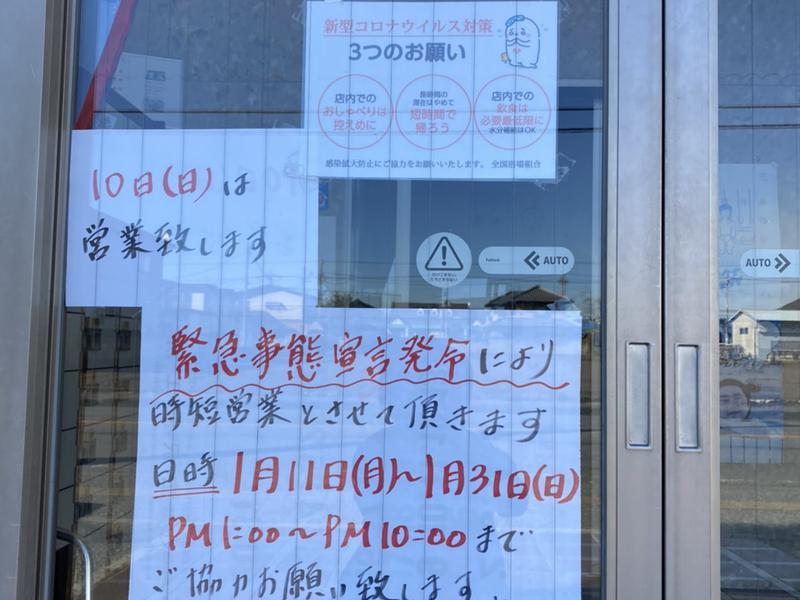 新型コロナウイルス対策
3つのお願い
店内での
おしゃべりは
控えめに
長時間の
滞在はやめて
短時間で
帰ろう
店内での
飲食は
必要最低限に
水分補給はOK
感染拡大防止にご協力をお願いいたします。 全国浴場組合
10日(日)は
営業致します
AUTO
AUTO
緊急事態宣言発令により
時短営業とさせて頂きます
日時 1月11日(月)~1月31日(日)
PM1:00~PM10:00まで
ご協力お願い致します。